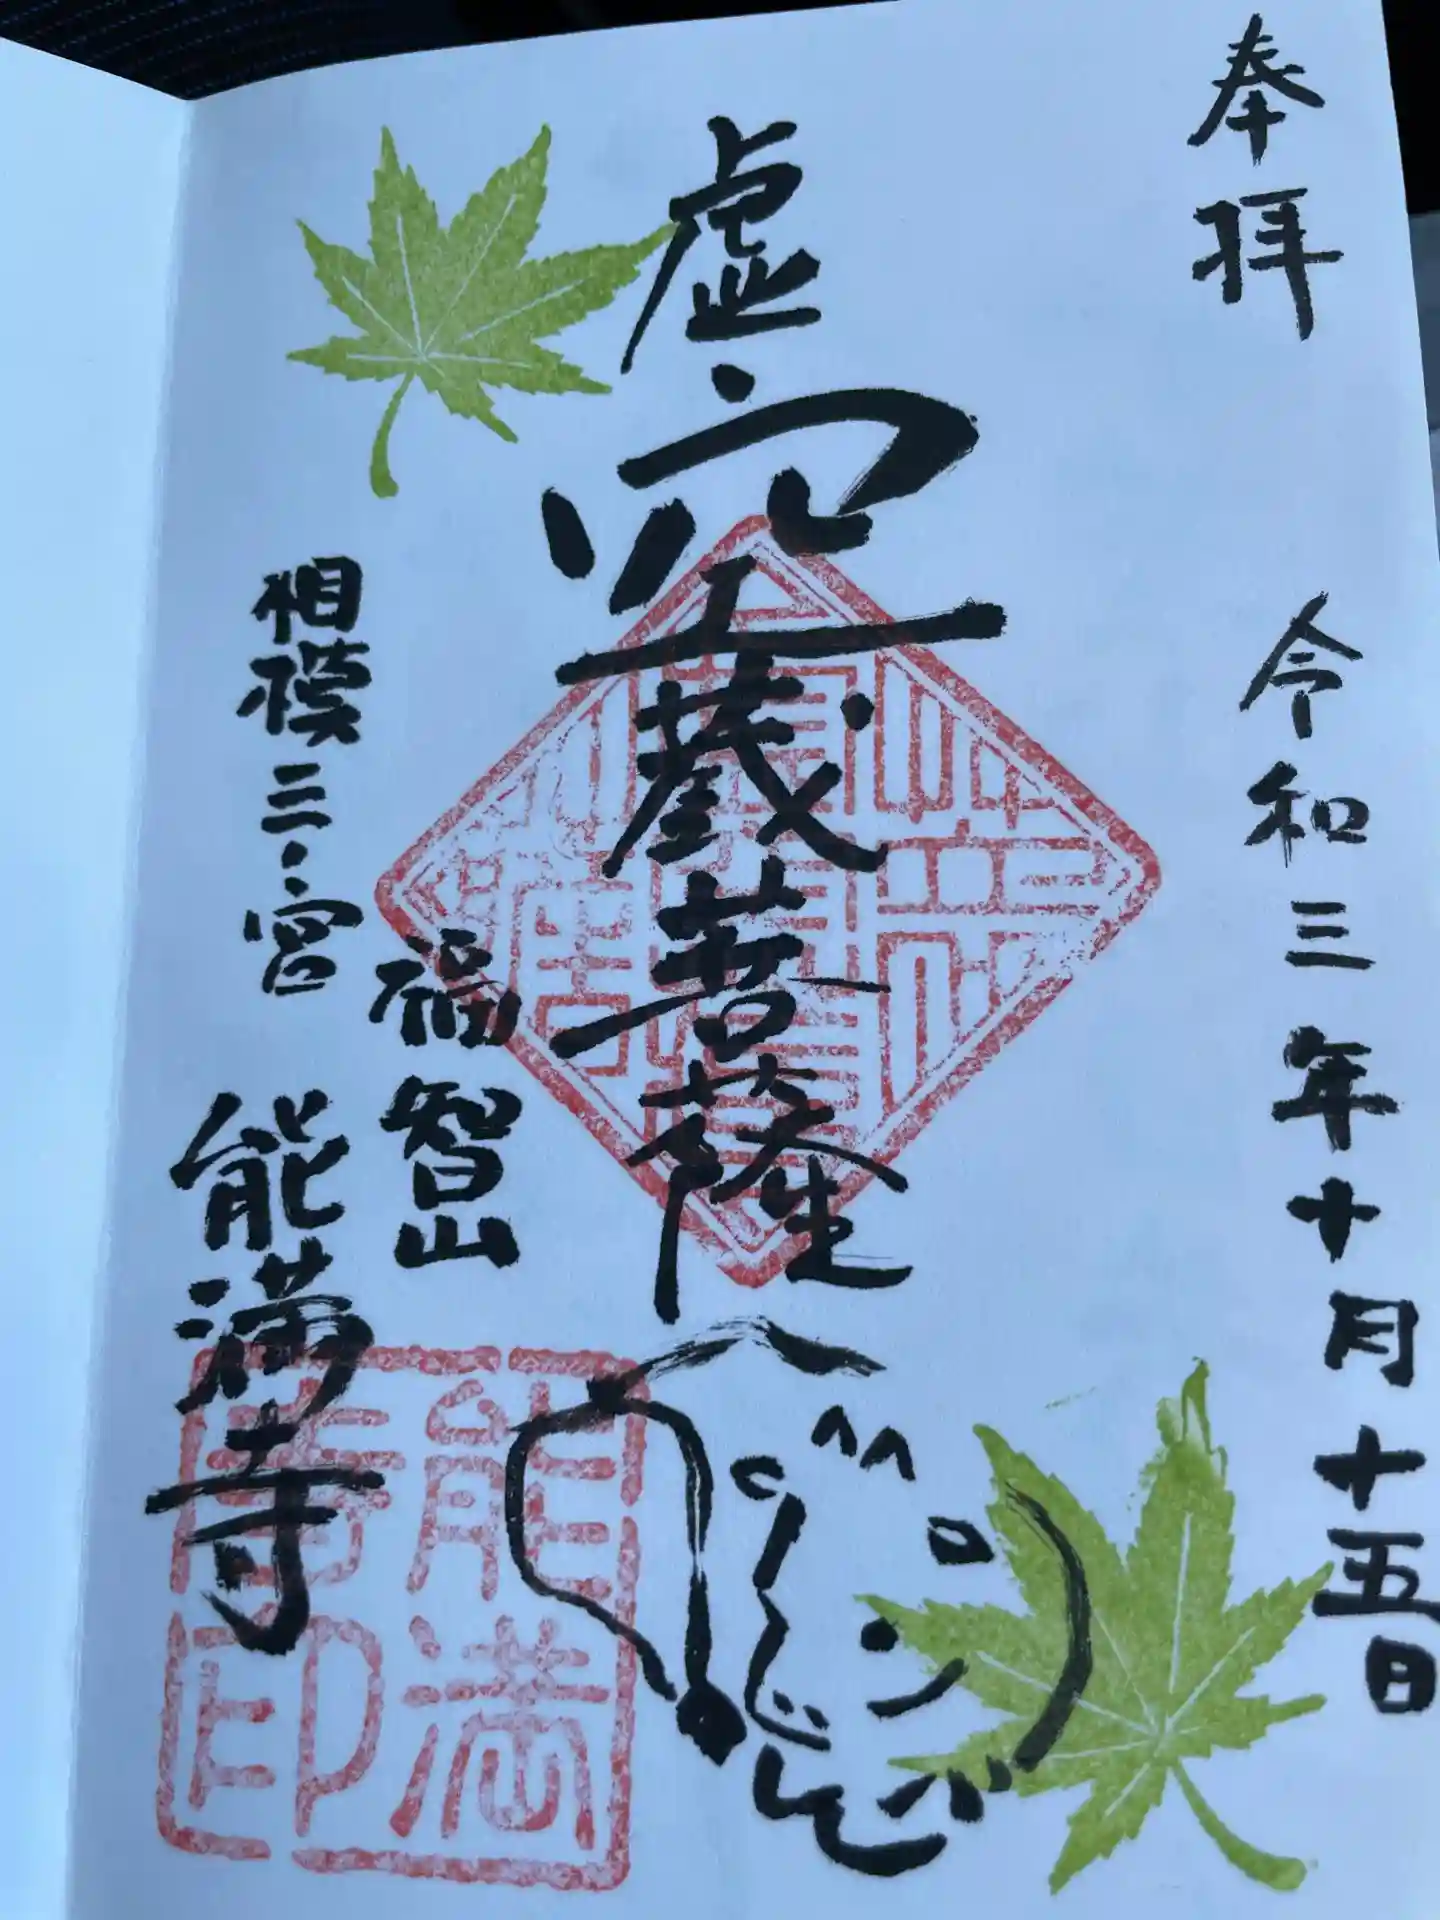 奉拝
令和三年十月十五日
虚空蔵菩薩
福智山
相模三ノ宮
能満寺
能満
寺印